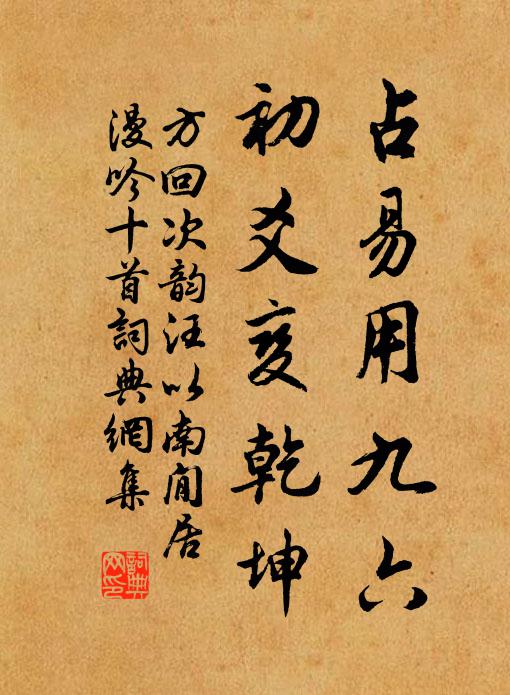 占易用九六
初爻变乾坤
方回次韵汪以南閒居
漫吟十首詞典網集
詞典
网印